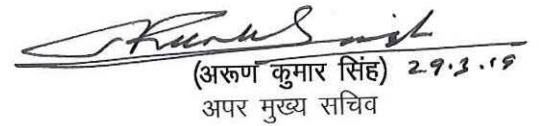 (अरूण कुमार सिंह) 29.3.19
अपर मुख्य सचिव